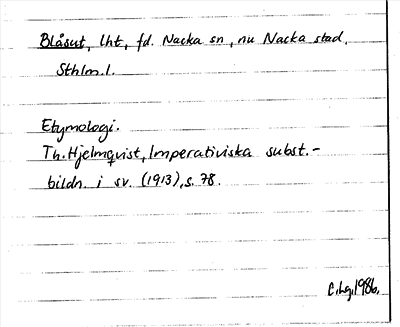 Blåsut, lht, fd. Nacka sn, nu Nacka stad,
Sthlm.l.
Etymologi.
Th. Hjelmqvist, Imperativiska subst.-
bildn. i sv. (1913), s. 78.
C.Lg. 1986.